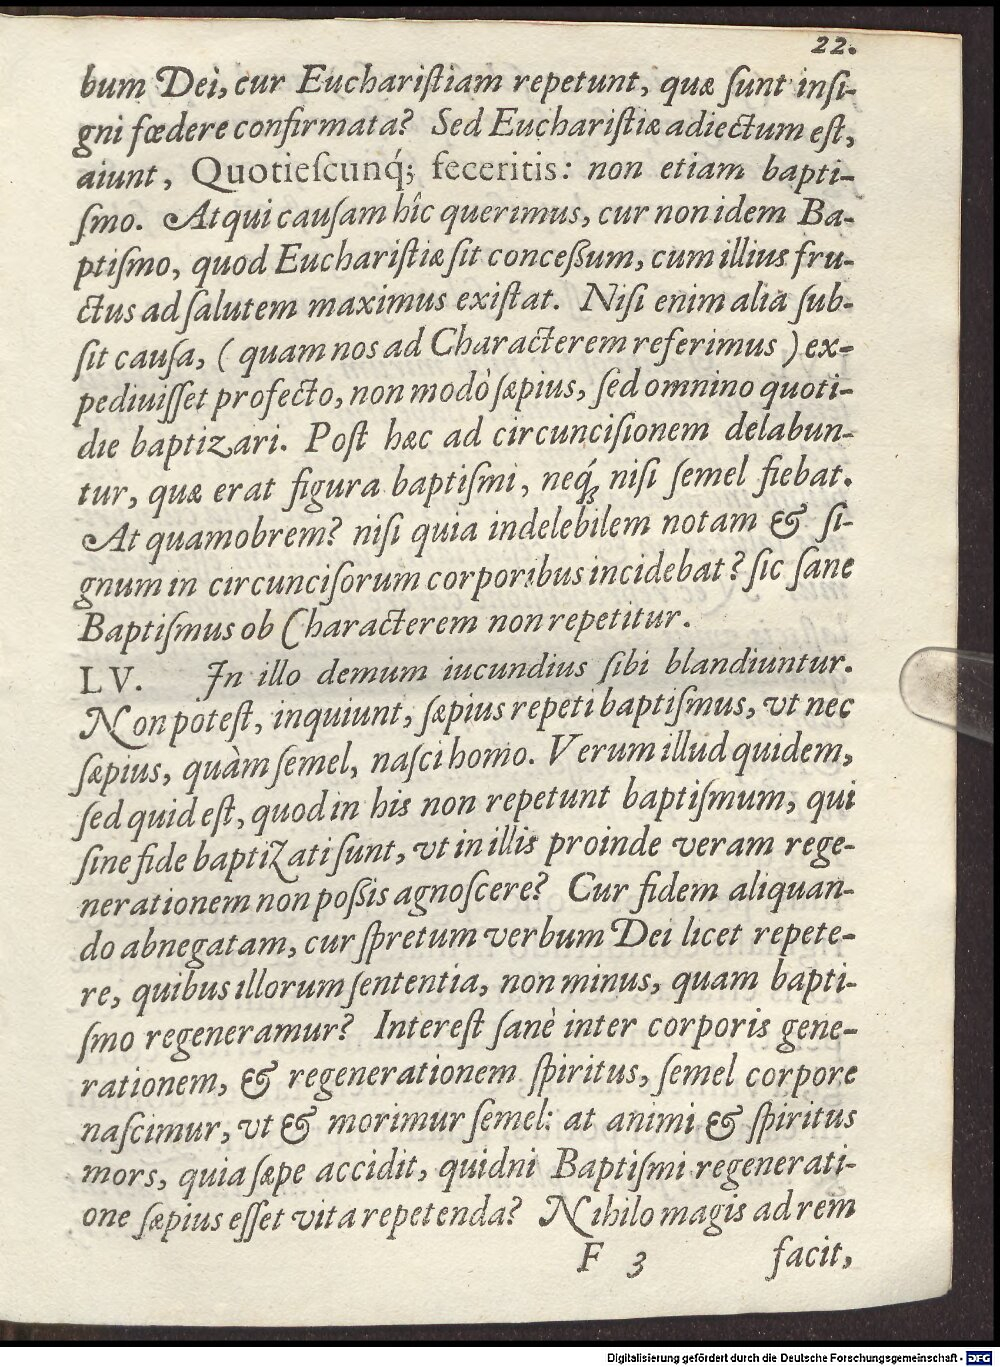 22.
bum Dei, cur Euchariſtiam repetunt, quæ ſunt inſi-
gni fœdere confirmata? Sed Euchariſtiæ adiectum eſt,
aiunt, Quotieſcunq́; feceritis: non etiam bapti-
ſmo. Atqui cauſam hîc querimus, cur non idem Ba-
ptiſmo, quod Euchariſtiæ ſit conceßum, cum illius fru-
ctus ad ſalutem maximus exiſtat. Niſi enim alia ſub-
ſit cauſa, ( quam nos ad Characterem referimus ) ex-
pediuiſſet profecto, non modò ſæpius, ſed omnino quoti-
die baptizari. Poſt hæc ad circunciſionem delabun-
tur, quæ erat figura baptiſmi, neq́; niſi ſemel fiebat.
At quamobrem? niſi quia indelebilem notam & ſi-
gnum in circunciſorum corporibus incidebat? ſic ſane
Baptiſmus ob Characterem non repetitur.
LV. In illo demum iucundius ſibi blandiuntur.
Non poteſt, inquiunt, ſæpius repeti baptiſmus, vt nec
ſæpius, quàm ſemel, naſci homo. Verum illud quidem,
ſed quid eſt, quod in his non repetunt baptiſmum, qui
ſine fide baptizati ſunt, vt in illis proinde veram rege-
nerationem non poßis agnoſcere? Cur fidem aliquan-
do abnegatam, cur ſpretum verbum Dei licet repete-
re, quibus illorum ſententia, non minus, quam bapti-
ſmo regeneramur? Intereſt ſanè inter corporis gene-
rationem, & regenerationem ſpiritus, ſemel corpore
naſcimur, vt & morimur ſemel: at animi & ſpiritus
mors, quia ſæpe accidit, quidni Baptiſmi regenerati-
one ſæpius eſſet vita repetenda? Nihilo magis ad rem
F 3 facit,
Digitalisierung gefördert durch die Deutsche Forschungsgemeinschaft - DFG